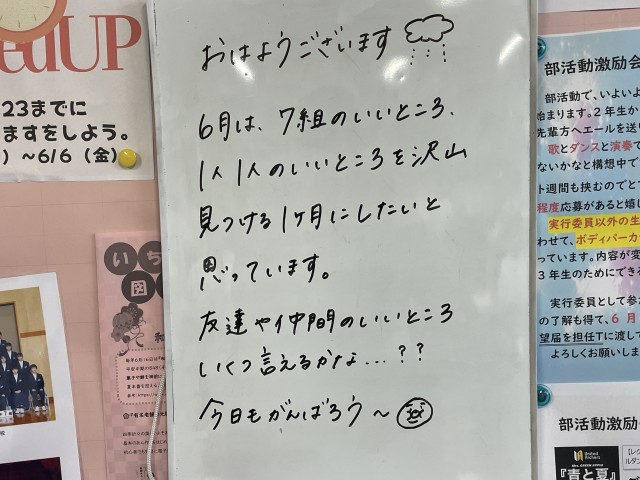 edUP
23までに
ますをしよう。
) ～6/6 (金)
おはようございます
6月は、7組のいいところ、
1人1人のいいところを沢山
見つける1ヶ月にしたいと
思っています。
友達や仲間のいいところ
いくつ言えるかな...??
今日もがんばろう～
いち
図
部活動激励会
部活動で、いよいよ
始まります。2年生か
先輩方へエールを送り
歌とダンスと演奏で
ないかなと構想中で
ト週間も挟むのでと
程度応募があると嬉し
実行委員以外の生
わせて、ボディパーカ
っています。内容が変
3年生のためにできる
実行委員として参
の了解も得て、6月
望届を担任Tに渡して
よろしくお願いしま
部活動激励会
Mrs. GREEN APPLE
『青と夏』